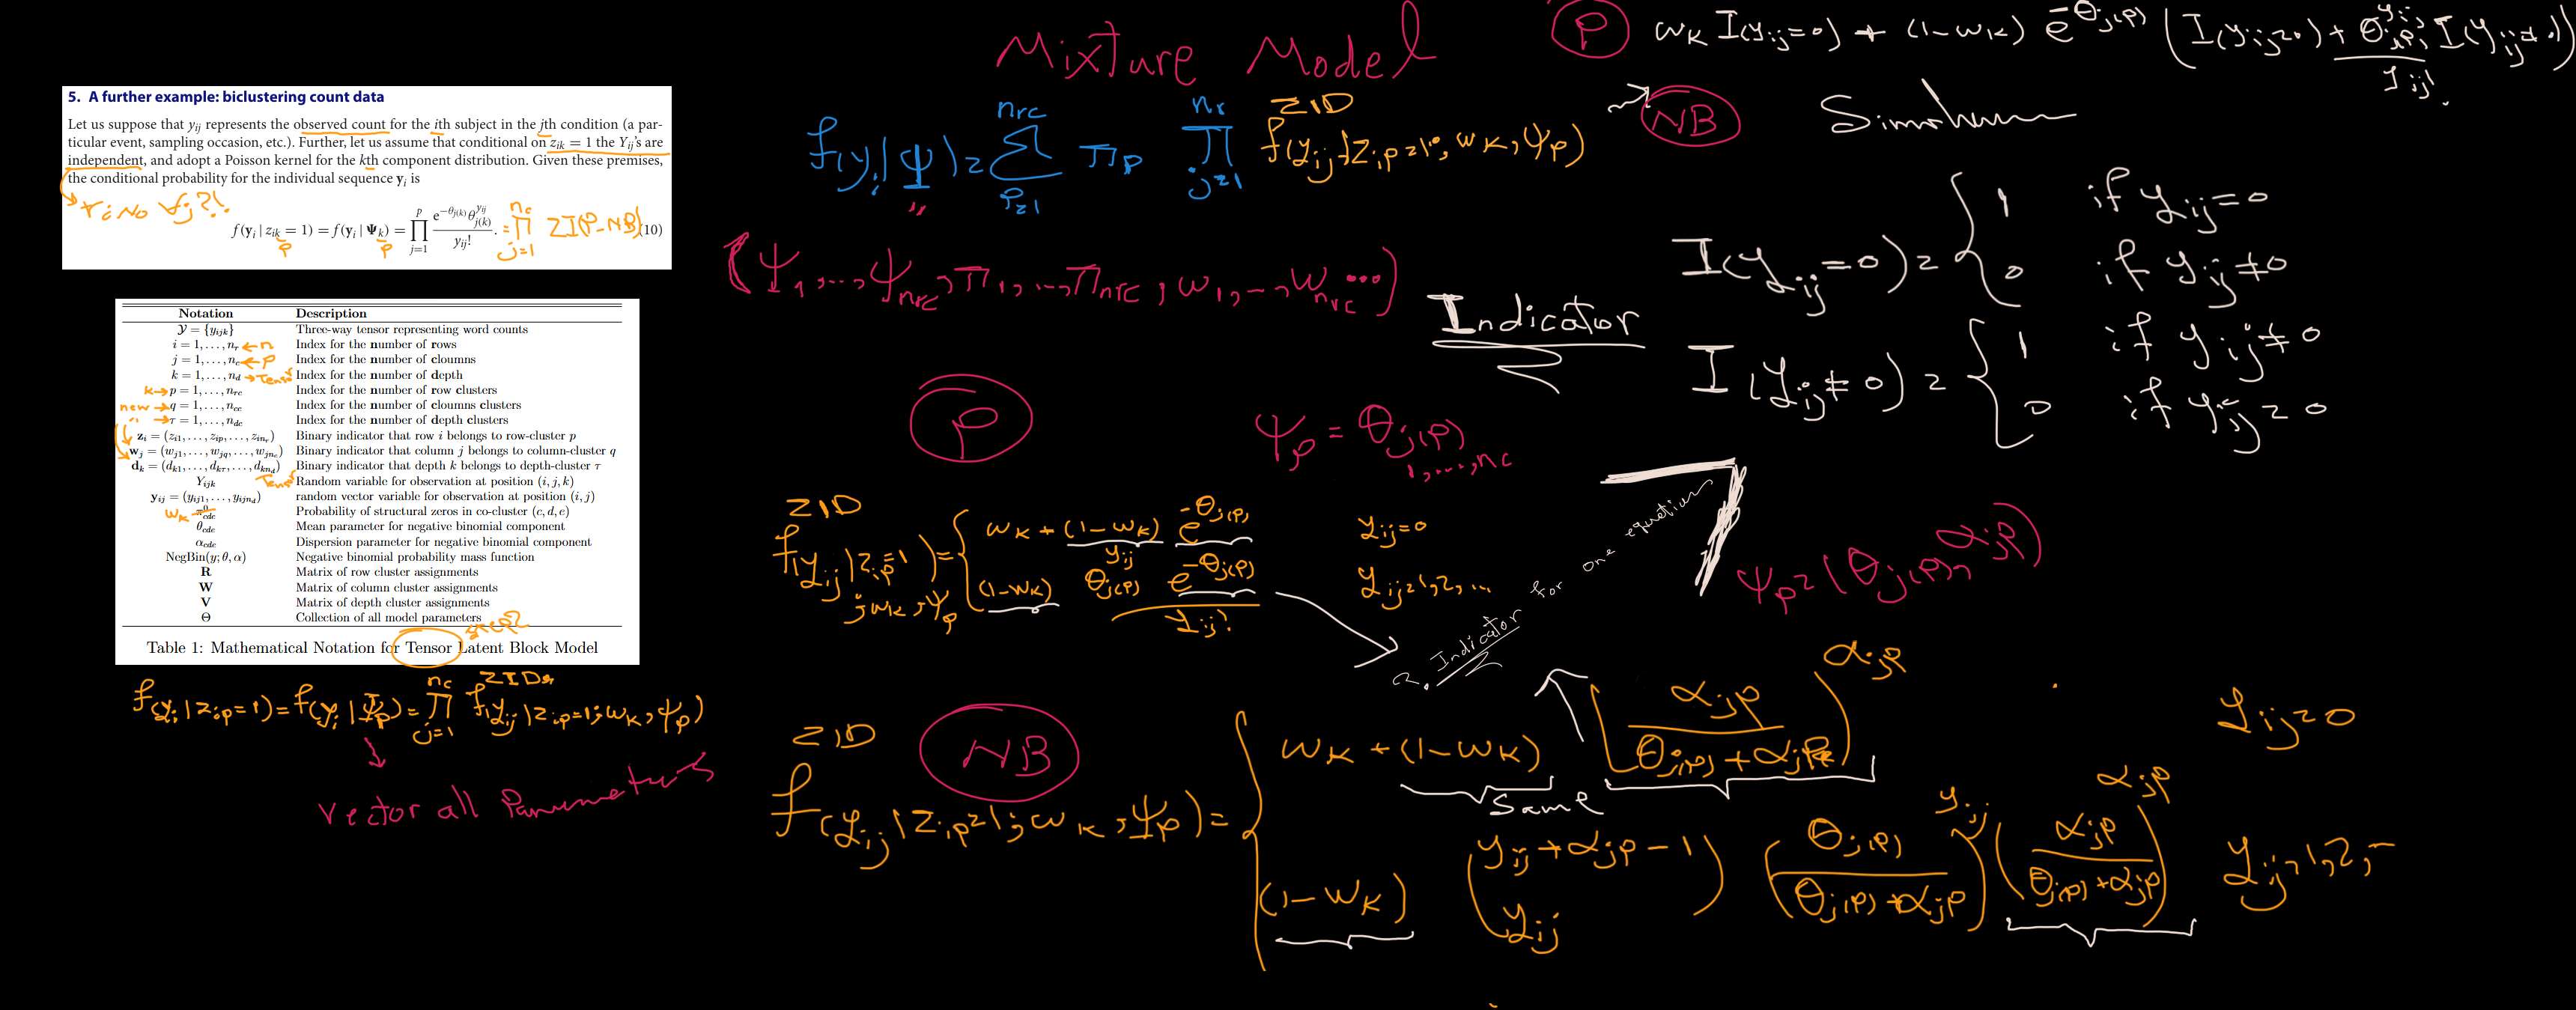 Mixture Model
P w_K I(y_ij=0) + (1-w_K) e^{-θ_j(p)} ( I(y_ij=0) + θ_j(p)^{y_ij} / y_ij! I(y_ij≠0) )
NB
5. A further example: biclustering count data
Let us suppose that y_ij represents the observed count for the ith subject in the jth condition (a par-
ticular event, sampling occasion, etc.). Further, let us assume that conditional on z_ik = 1 the Y_ij's are
independent, and adopt a Poisson kernel for the kth component distribution. Given these premises,
the conditional probability for the individual sequence y_i is
No ∀j?!
f(y_i | z_ik = 1) = f(y_i | Ψ_k) = ∏_{j=1}^{p} e^{-θ_j(k)} θ_j(k)^{y_ij} / y_ij! . = ∏_{j=1}^{n_c} ZI(P-NB) (10)
p p
Notation Description
𝒴 = {y_ijk} Three-way tensor representing word counts
i = 1, . . . , n_r ← n Index for the number of rows
j = 1, . . . , n_c ← p Index for the number of cloumns
k = 1, . . . , n_d → Tensor Index for the number of depth
k → p = 1, . . . , n_rc Index for the number of row clusters
new → q = 1, . . . , n_cc Index for the number of cloumns clusters
" → τ = 1, . . . , n_dc Index for the number of depth clusters
z_i = (z_i1, . . . , z_ip, . . . , z_in_r) Binary indicator that row i belongs to row-cluster p
w_j = (w_j1, . . . , w_jq, . . . , w_jn_c) Binary indicator that column j belongs to column-cluster q
d_k = (d_k1, . . . , d_kτ, . . . , d_kn_d) Binary indicator that depth k belongs to depth-cluster τ
Y_ijk Tensor Random variable for observation at position (i, j, k)
y_ij = (y_ij1, . . . , y_ijn_d) random vector variable for observation at position (i, j)
w_K π^0_cde Probability of structural zeros in co-cluster (c, d, e)
θ_cde Mean parameter for negative binomial component
α_cde Dispersion parameter for negative binomial component
NegBin(y; θ, α) Negative binomial probability mass function
R Matrix of row cluster assignments
W Matrix of column cluster assignments
V Matrix of depth cluster assignments
Θ Collection of all model parameters
Table 1: Mathematical Notation for Tensor Latent Block Model
f(y_i | z_ip=1) = f(y_i | Ψ_p) = ∏_{j=1}^{n_c} f^{ZIDs}(y_ij | z_ip=1; w_K, ψ_p)
Vector all Parameters
f(y_i | Ψ) = ∑_{p=1}^{n_rc} π_p ∏_{j=1}^{n_r} f^{ZID}(y_ij | z_ip=1; w_K, ψ_p)
(ψ_1, ..., ψ_n_rc, π_1, ..., π_n_rc, w_1, -, w_n_rc ...)
Indicator
I(y_ij=0) = { 1 if y_ij=0
0 if y_ij≠0
I(y_ij≠0) = { 1 if y_ij≠0
0 if y_ij=0
P
ψ_p = θ_j(p)
1, ..., n_c
f^{ZID}(y_ij | z_ip=1; w_K, ψ_p) = { w_K + (1-w_K) e^{-θ_j(p)} y_ij=0
(1-w_K) θ_j(p)^{y_ij} e^{-θ_j(p)} / y_ij! y_ij=1,2,...
Indicator for one equation
ψ_p = (θ_j(p), α_jp)
NB
f^{ZID}(y_ij | z_ip=1; w_K, ψ_p) = { w_K + (1-w_K) ( α_jp / (θ_j(p) + α_jp) )^{α_jp} y_ij=0
Same
(1-w_K) ( y_ij + α_jp - 1 ; y_ij ) ( θ_j(p) / (θ_j(p) + α_jp) )^{y_ij} ( α_jp / (θ_j(p) + α_jp) )^{α_jp} y_ij=1,2,-